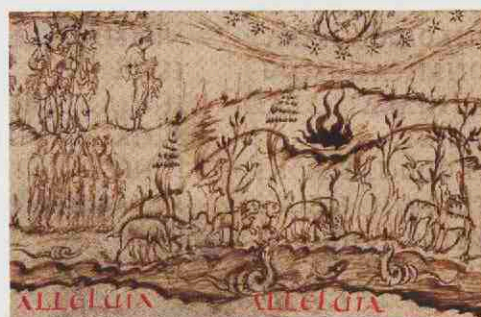 ALLELUIA ALLELUIA